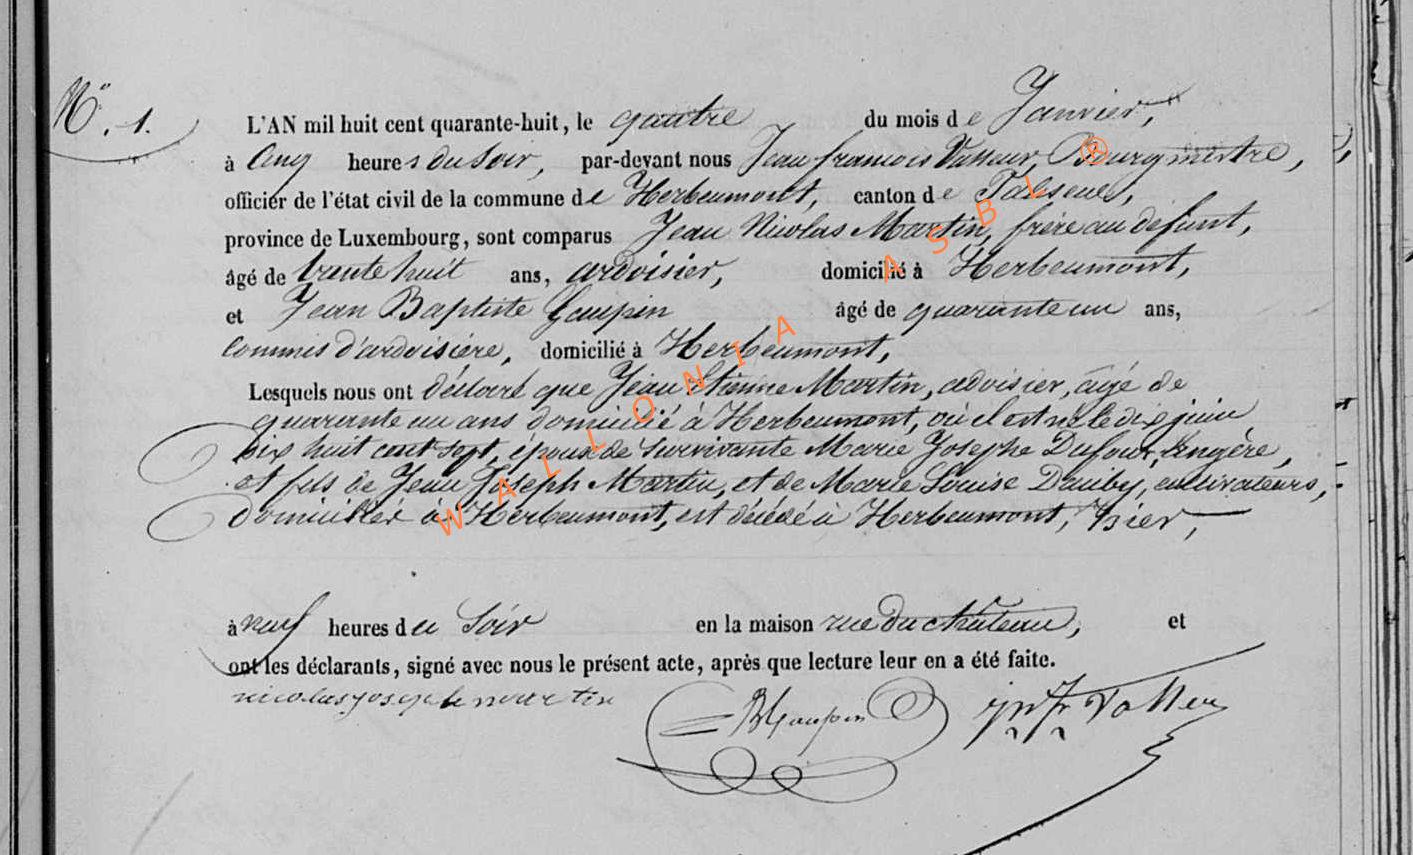 N° 1.
L'AN mil huit cent quarante-huit, le quatre du mois de Janvier,
à Cinq heures du Soir, par-devant nous Jean françois Vasseur, Bourgmestre,
officier de l'état civil de la commune de Herbeumont, canton de Paliseul,
province de Luxembourg, sont comparus Jean Nicolas Martin, frère au défunt,
âgé de trente huit ans, ardoisier, domicilié à Herbeumont,
et Jean Baptiste Gaupin âgé de quarante un ans,
Commis d'ardoisière, domicilié à Herbeumont,
Lesquels nous ont déclaré que Jean Etienne Martin, ardoisier, âgé de
quarante un ans domicilié à Herbeumont, où il est né le dix juin
dix huit cent sept, époux de survivante Marie Josephe Dufour, lingère,
et fils de Jean Joseph Martin, et de Marie Louise Dauby, cultivateurs,
domiciliés à Herbeumont, est décédé à Herbeumont, hier,
à neuf heures du Soir en la maison rue du château, et
ont les déclarants, signé avec nous le présent acte, après que lecture leur en a été faite.
nicolas joseph martin JBGaupin
WALLONIA ASBL ®